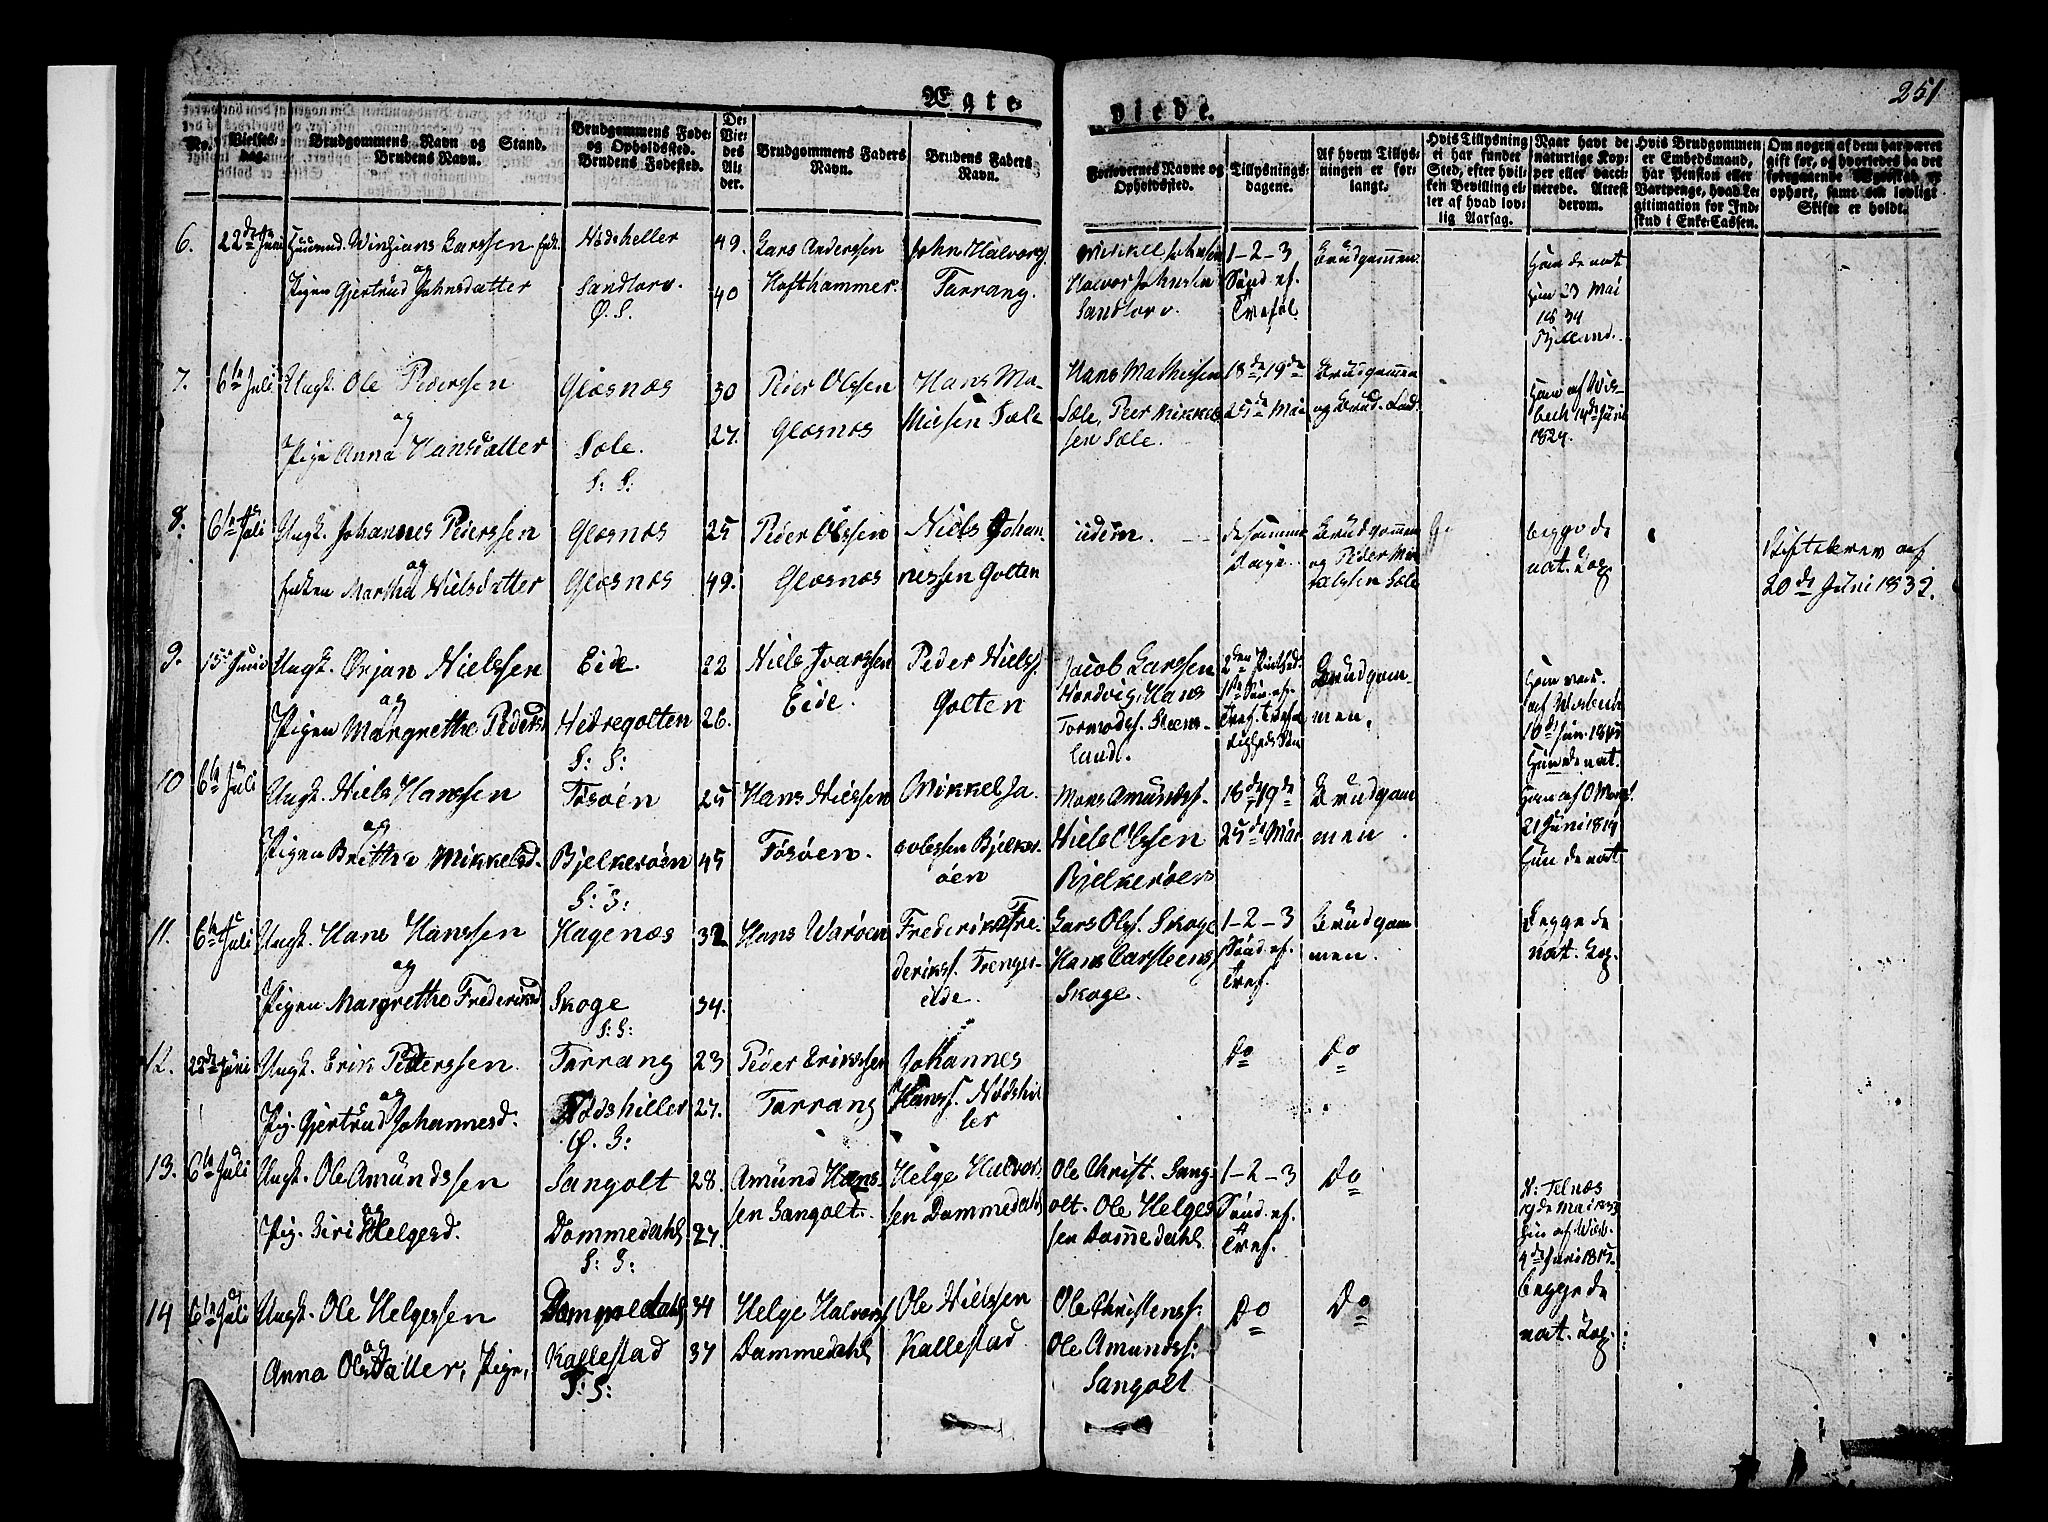 251
Ægte
viede.
No.
Vielses-
dag.
Brudgommens Navn og Stand.
Brudens Navn.
Brudgommens Føde-
og Opholdssted.
Brudens Fødested.
De
Vie-
des
Al-
der.
Brudgommens Faders
Navn.
Brudens Faders
Navn.
Forlovernes Navne og
Opholdssted.
Tillysnings-
dagene.
Af hvem Tillys-
ningen er for-
langt.
Hvis Tillysning
ei har fundet
Sted, efter hvil-
ken Bevilling el-
ler af hvad lov-
lig Aarsag.
Naar havt de
naturlige Kop-
per eller vacci-
nerede. Attest
derom.
Hvis Brudgommen
er Embedsmand,
har Pension eller
Vartpenge, hvad Le-
gitimation for Ind-
skud i Enke-Cassen.
Om nogen af dem har været
gift før, og hvorledes da det
foregaaende Ægteskab er
ophørt, samt om lovligt
Skifte er holdt.
6.
22de Juni
Larssen
Pigen Gjertrud Johnsdatter
og
Nødsheller
Sandtorv.
Ø. S.
49.
40
Lars Anderssen
Hofthammer.
John Halvors.
Tarrang.
Mikkel Johnsen
Halvor Johnsen
Sandtorv.
1-2-3
Sønd. ef.
Trefol.
Brudgommen.
Ham de nat.
Hun 23 Mai
1834
7.
6te Juli
Ungk. Ole Pederssen
og
Pige Anna Hansdatter
Glæsnæs
Sæle.
S: S:
30
27.
Peder Olssen
Glæsnæs
Hans Ma-
thissen Sæle
Hans Mathissen
Sæle, Peer Mikkel-
sen Sæle.
18de, 19de
25de Mai
Brudgommen
og
Ham af Wis-
bech 14de Juni
1824.
8.
6te Juli
Ungk. Johannes Pederssen
og
Enken Martha Nielsdatter
Glæsnæs
Glæsnæs
25
49.
Peder Olssen
Glæsnæs
Niels Johan
nessen Golten
iidem.
de samme
Dage.
Brudgommen
og Peder Mi
Sæle
begge de
nat. Kop.
Skiftebrev af
20de Juni 1832.
9.
15 Juni
Ungk. Ørjan Nielssen
og
Pigen Margrethe Peders
Eide
Hedregolten
S: S:
22
26.
Niels Ivarssen
Eide.
Peder Niels.
Golten
Jacob Larssen
Nordvig, Hans
Tormods. Steens-
land.
2den Pintsed.
1ste Søn. ef.
Tref. Trefol
digheds Søn
Brudgom-
men.
Ham vac.
af Wisbech
Hun de nat.
10
6te Juli
Ungk. Niels Hanssen
og
Pigen Britha Mikkelsd.
Tøsøen
Bjelkerøen
S: S:
25
45
Hans Nielssen
Tøsøen.
Mikkel Ja-
Bjelker-
øen
Mons Amunds.
Niels Olssen
Bjelkerøen
18de, 19de
25de Mai
Brudgom
men
21 Juni 1814
Hun de nat
11.
6te Juli
Ungk. Hans Hanssen
og
Pigen Margrethe Frederiksd
Hagenæs
Skoge
S: S:
32
34.
Hans Warøen
Frederik Fre-
deriks. Trenge-
eide.
Lars Ols. Skoge
Hans Carsteens
Skoge.
1-2-3
Sønd. ef.
Tref.
Brudgom
men.
Begge de
nat. Kop.
12.
22de Juni
Ungk. Erik Pederssen
og
Pig. Gjertrud Johannesd.
Tarrang
Nødsheller
Ø. S:
23
27.
Peder Erikssen
Tarrang
Johannes
Hanss. Nødshel
ler
Do
Do
13.
6te Juli
Ungk. Ole Amundssen
og
Pig. Siri Helgesd.
Sangolt
Dommedahl
S: S:
28.
27.
Amund Hans
sen Sangolt.
Helge Halvor
sen Dommedahl
Ole Christ. Sang-
olt. Ole Helges
sen Dommedahl
1-2-3
Sønd. ef.
Tref.
Do
H: Telnæs
de Mai 1833
Hun af Wisb.
9de Juni 1815.
14
6te Juli
Ungk. Ole Helgessen
og
Anna Olsdatter, Pige,
Dommedahl
Kallestad
S: S:
34
37
Helge Halvors
Dammedahl
Ole Nielssen
Kallestad
Ole Christenss:
Ole Amundss:
Sangolt
Do
Do
begge de
nat. Kop.